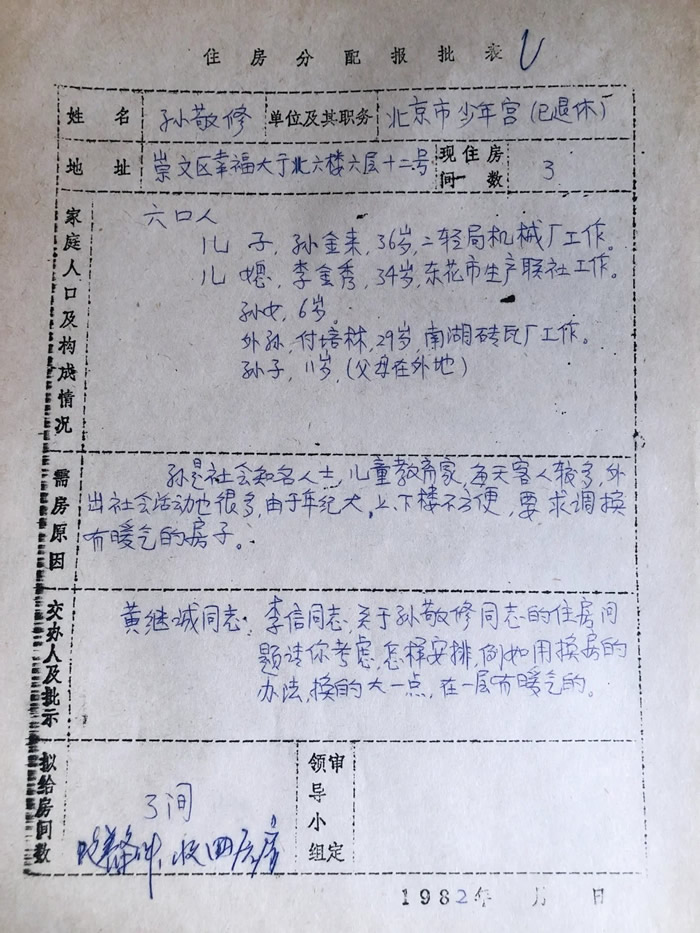 住房分配报批表
姓名 孙敬修 单位及其职务 北京市少年宫(已退休)
地址 崇文区幸福大于北六楼六层十二号 现住房间数 3
家庭人口及构成情况
六口人
儿子,孙金来,36岁,二轻局机械厂工作。
儿媳,李金秀,34岁,东花市生产联社工作。
孙女,6岁。
外孙,付培林,29岁,南湖砖瓦厂工作。
孙子,11岁,(父母在外地)
需房原因
孙是社会知名人士,儿童教育家,每天客人较多,外
出社会活动也很多,由于年纪大,上下楼不方便,要求调换
有暖气的房子。
交办人及批示
黄继诚同志:李信同志关于孙敬修同志的住房问
题请你考虑,怎样安排,例如用换房的
办法,换的大一点,在一层有暖气的。
拟给房间数
3间
改善条件,收四层房
领导小组审定
1982年 月 日